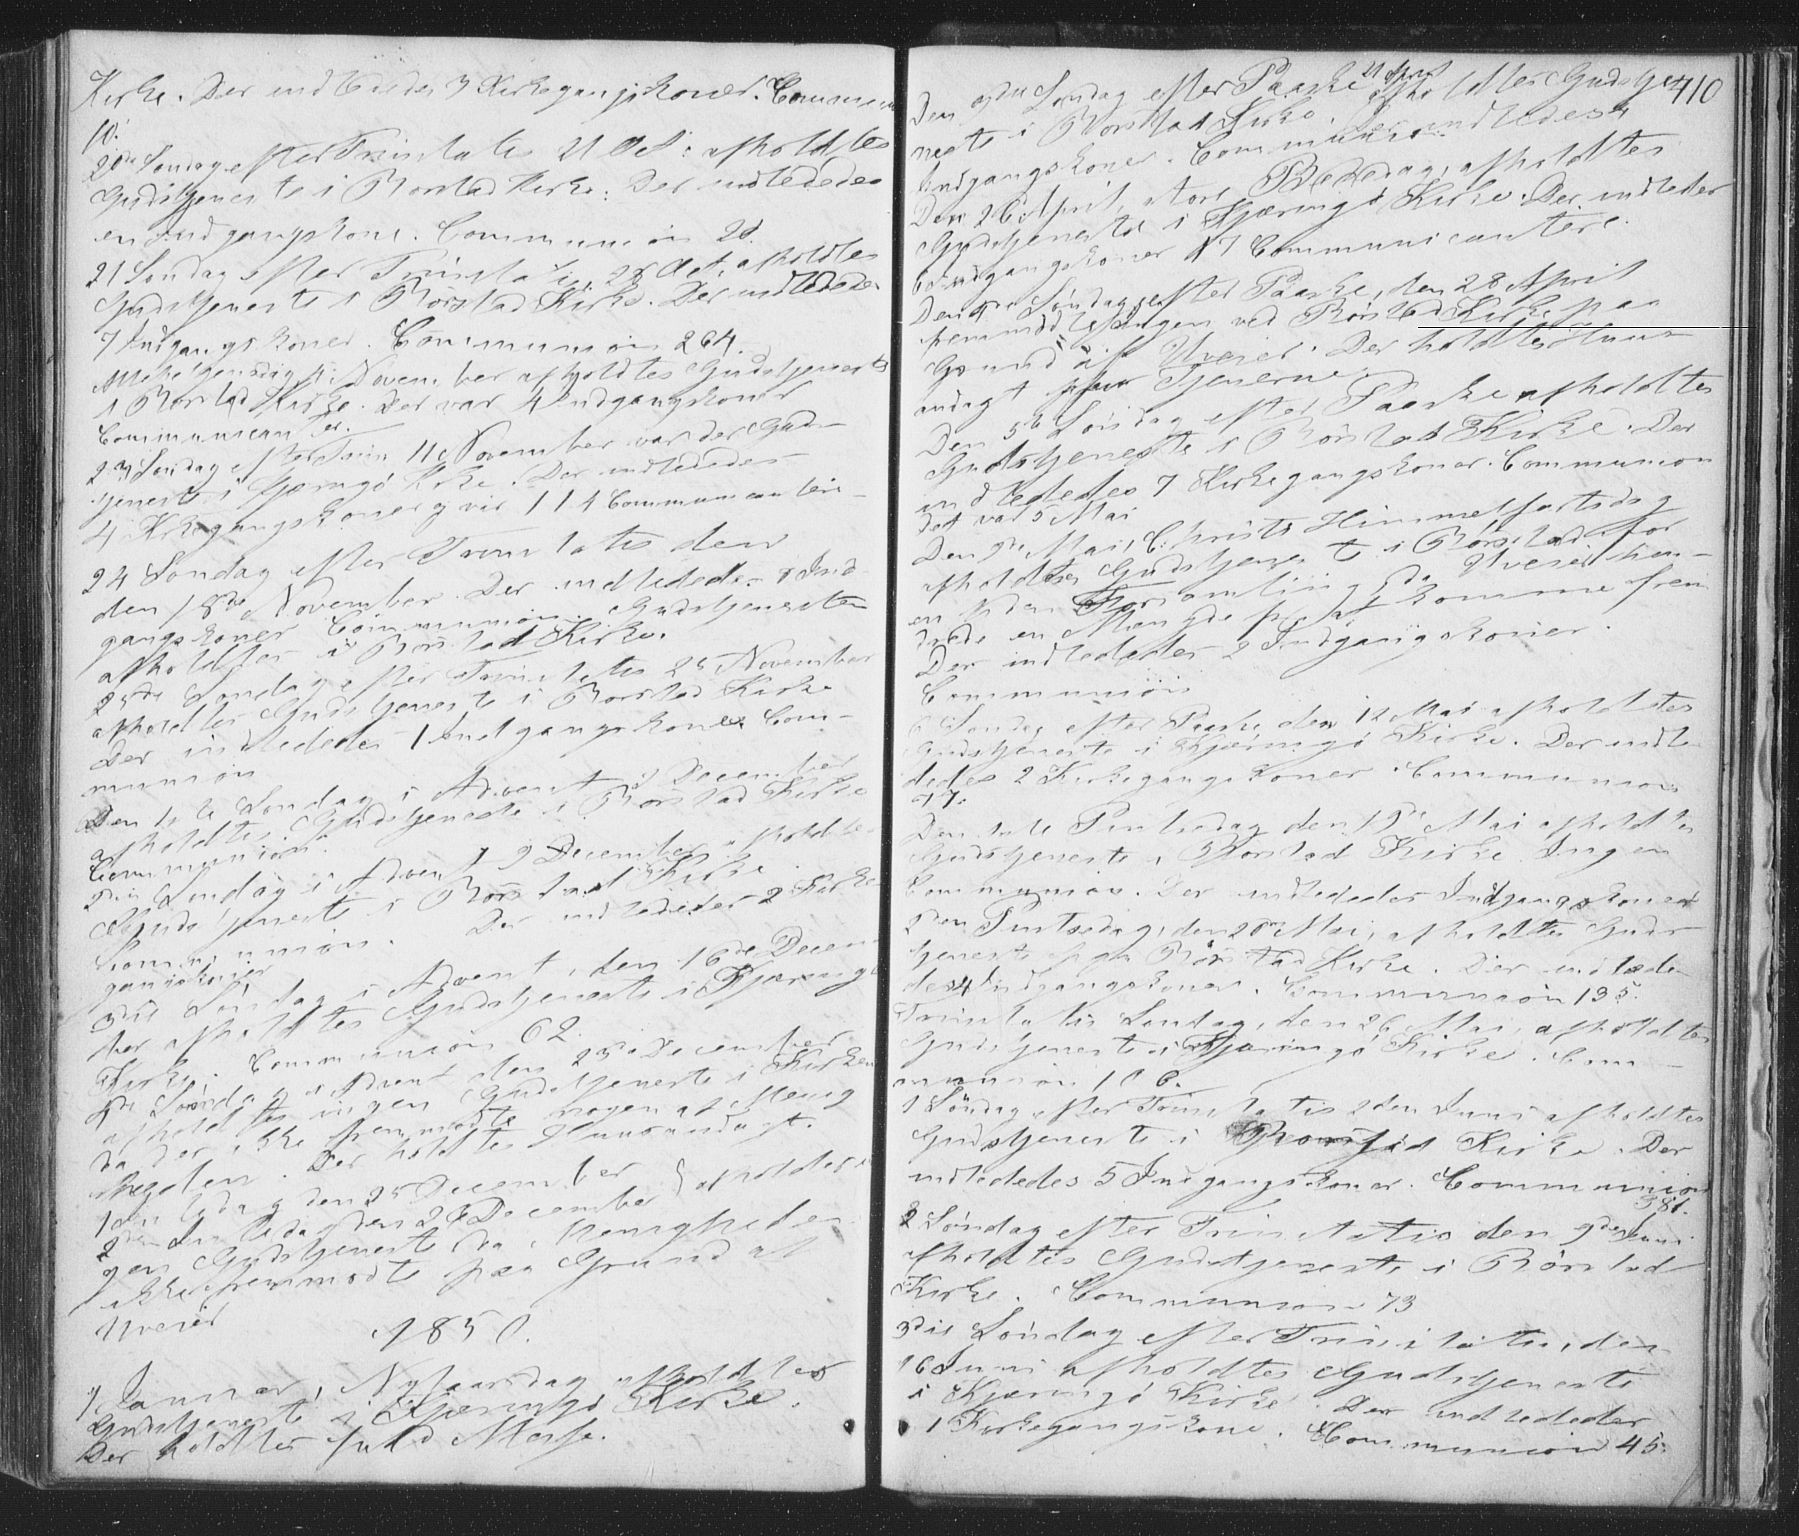 Kirke. Der indledes 3 Kirkegangskoner. Commun
10.
20de Söndag efter Trinitatis 21 Oct: afholdtes
Gudstjeneste i Rörstad Kirke. Der indlededes
en Indgangskone. Communion 20.
21 Söndag efter Trinitatis, 28 Oct. afholdtes
Gudstjeneste i Rörstad Kirke. Der indlededes
7 Indgangskoner. Communion 264.
Allehelgensdag 4 November afholdtes Gudstjeneste
i Rörstad Kirke. Der var 4 Indgangskoner
Communicanter.
23 Söndag efter Trin 11 November var der Guds-
tjeneste i Kjæringö Kirke. Der indlededes
4 Kirkegangskoner og var 114 Communicantere
24 Söndag efter Trinitatis den
den 18de November. Der indlededes 8 Ind-
gangskoner Communion. Gudstjenesten
afholdtes i Rörstad Kirke.
25de Söndag efter Trinitatis 25 November
afholdtes Gudstjeneste i Rörstad Kirke
Der indlededes 1 Indgangskone. Com-
munion
Den 1ste Söndag i Advent 2 December
afholdtes Gudstjeneste i Rörstad Kirke
Communion.
2den Söndag i Advent 9 December afholdtes
Gudstjeneste i Rörstad Kirke
Communion. Der indlededes 2 Kirke-
gangskoner
3die Söndag i Advent, den 16de Decem-
ber afholdtes Gudstjeneste i Kjæringö
Kirke. Communion 62.
4de Söndag i Advent den 23de December
afholdtes ingen Gudstjeneste i Kirken
da der ikke fremmödte nogen af Menig-
heden. Der holdtes Huusandagt.
1ste Juledag den 25 December
2den Juledag den 26 December } afholdtes in
gen Gudstjeneste da Menigheden
ikke fremmödte paa Grund af
Uveier
1850.
1 Januar, Nytaarsdag afholdtes
Gudstjeneste i Kjæringö Kirke.
Der holdtes fuld Messe.
410
Den 3die Söndag efter Paaske 21 April afholdtes Gudstje-
neste i Rörstad Kirke. Der indledes
Indgangskoner. Communion.
Den 26 April, store Bededag, afholdtes
Gudstjeneste i Kjæringö Kirke. Der indledes
6 Indgangskoner 17 Communicantere.
Den 4de Söndag efter Paaske, den 28 April
ved Rörstad Kirke paa
Grund af Uveier. Der holdtes Huus-
andagt for Tjenerne.
Den 5te Söndag efter Paaske afholdtes
Gudstjeneste i Rörstad Kirke. Der
indlededes 7 Kirkegangskoner. Communion
det var 5 Mai
Den 9de Mai, Christi Himmelfartsdag
afholdtes Gudstjeneste i Rörstad for
en liden Forsamling da Uveier hin-
drede en Mængde fra at komme frem
Der indlededes 2 Indgangskoner.
Communion
6 Söndag efter Paaske den 12 Mai afholdtes
Gudstjeneste i Kjæringö Kirke. Der indle-
dedes 2 Kirkegangskoner. Communion
77.
Den 1ste Pintsedag den 19de Mai afholdtes
Gudstjeneste i Rörstad Kirke Ingen
Communion. Der indlededes Indgangskoner
2den Pintsedag, den 20de Mai, afholdtes Guds-
tjeneste paa Rörstad Kirke. Der indlede-
des 4 Indgangskoner. Communion 135.
Trinitatis Söndag, den 26 Mai, afholdtes
Gudstjeneste i Kjæringö Kirke. Com-
munion 106.
1 Söndag efter Trinitatis 2den Juni afholdtes
Gudstjeneste i Rörstad Kirke. Der
indlededes 5 Indgangskoner. Communion
381.
2 Söndag efter Trinitatis den 9den Juni
afholdtes Gudstjeneste i Rörstad
Kirke. Communion 73
3die Söndag efter Trinitatis, den
16 Juni afholdtes Gudstjeneste
i Kjæringö Kirke. Der indlededes
1 Kirkegangskone. Communion 45.